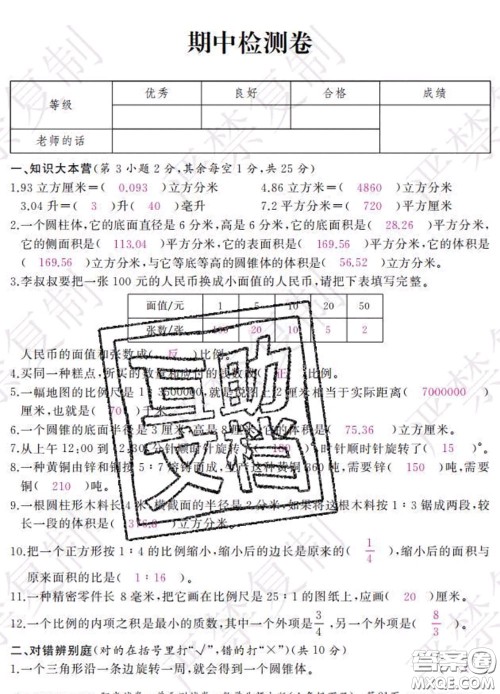 期中检测卷
等级 优秀 良好 合格 成绩
老师的话
一、知识大本营(第 3 小题 2 分,其余每空 1 分,共 25 分)
1.93 立方厘米=( 0.093 )立方分米 4.86 立方米=( 4860 )立方分米
3.04 升=( 3 )升( 40 )毫升 7.2 平方分米=( 720 )平方厘米
2.一个圆柱体,它的底面直径是 6 分米,高是 6 分米,它的底面积是( 28.26 )平方分米,
它的侧面积是( 113.04 )平方分米,它的表面积是( 169.56 )平方分米,它的体积是
( 169.56 )立方分米,与它等底等高的圆锥体的体积是( 56.52 )立方分米。
3.李叔叔要把一张 100 元的人民币换成小面值的人民币,请把下表填写完整。
面值/元 1 5 10 20 50
张数/张 20 10 5 2
人民币的面值和张数成( 反 )比例。
4.买同一种糕点,所买的数量和应付的钱数成( 正 )比例。
5.一幅地图的比例尺是 1∶3500000,就是说图上 2 厘米相当于实际距离( 7000000 )
厘米,也就是( 70 )千米。
6.一个圆锥的底面半径是 3 厘米,高是 8 厘米,它的体积是( 75.36 )立方厘米。
7.从上午 12:00 到 12:30,分针顺时针旋转了( )°,时针顺时针旋转了( 15 )°。
8.一种黄铜由锌和铜按 5∶7 熔铸而成,生产这种黄铜 360 吨,需要锌( 150 )吨,需要
铜( 210 )吨。
9.一根圆柱形木料长 4 米,横截面的半径是 2 分米,如果将这根木料按 1∶3 锯成两段,较
长一段的体积是( )立方分米。
10.把一个正方形按 1∶4 的比例缩小,缩小后的边长是原来的( 1/4 ),缩小后的面积与
原来面积的比是( 1∶16 )。
11.一种精密零件长 8 毫米,把它画在比例尺是 25∶1 的图纸上,应画( 20 )厘米。
12.一个比例的内项之积是最小的质数,其中一个外项是3/4,另一个外项是( 8/3 )。
二、对错辨别庭(对的在括号里打“√”,错的打“×”)(共 10 分)
1.一个三角形沿一条边旋转一周,就会得到一个圆锥体。
严禁复制
互助文档
答案圈
MXQE.COM